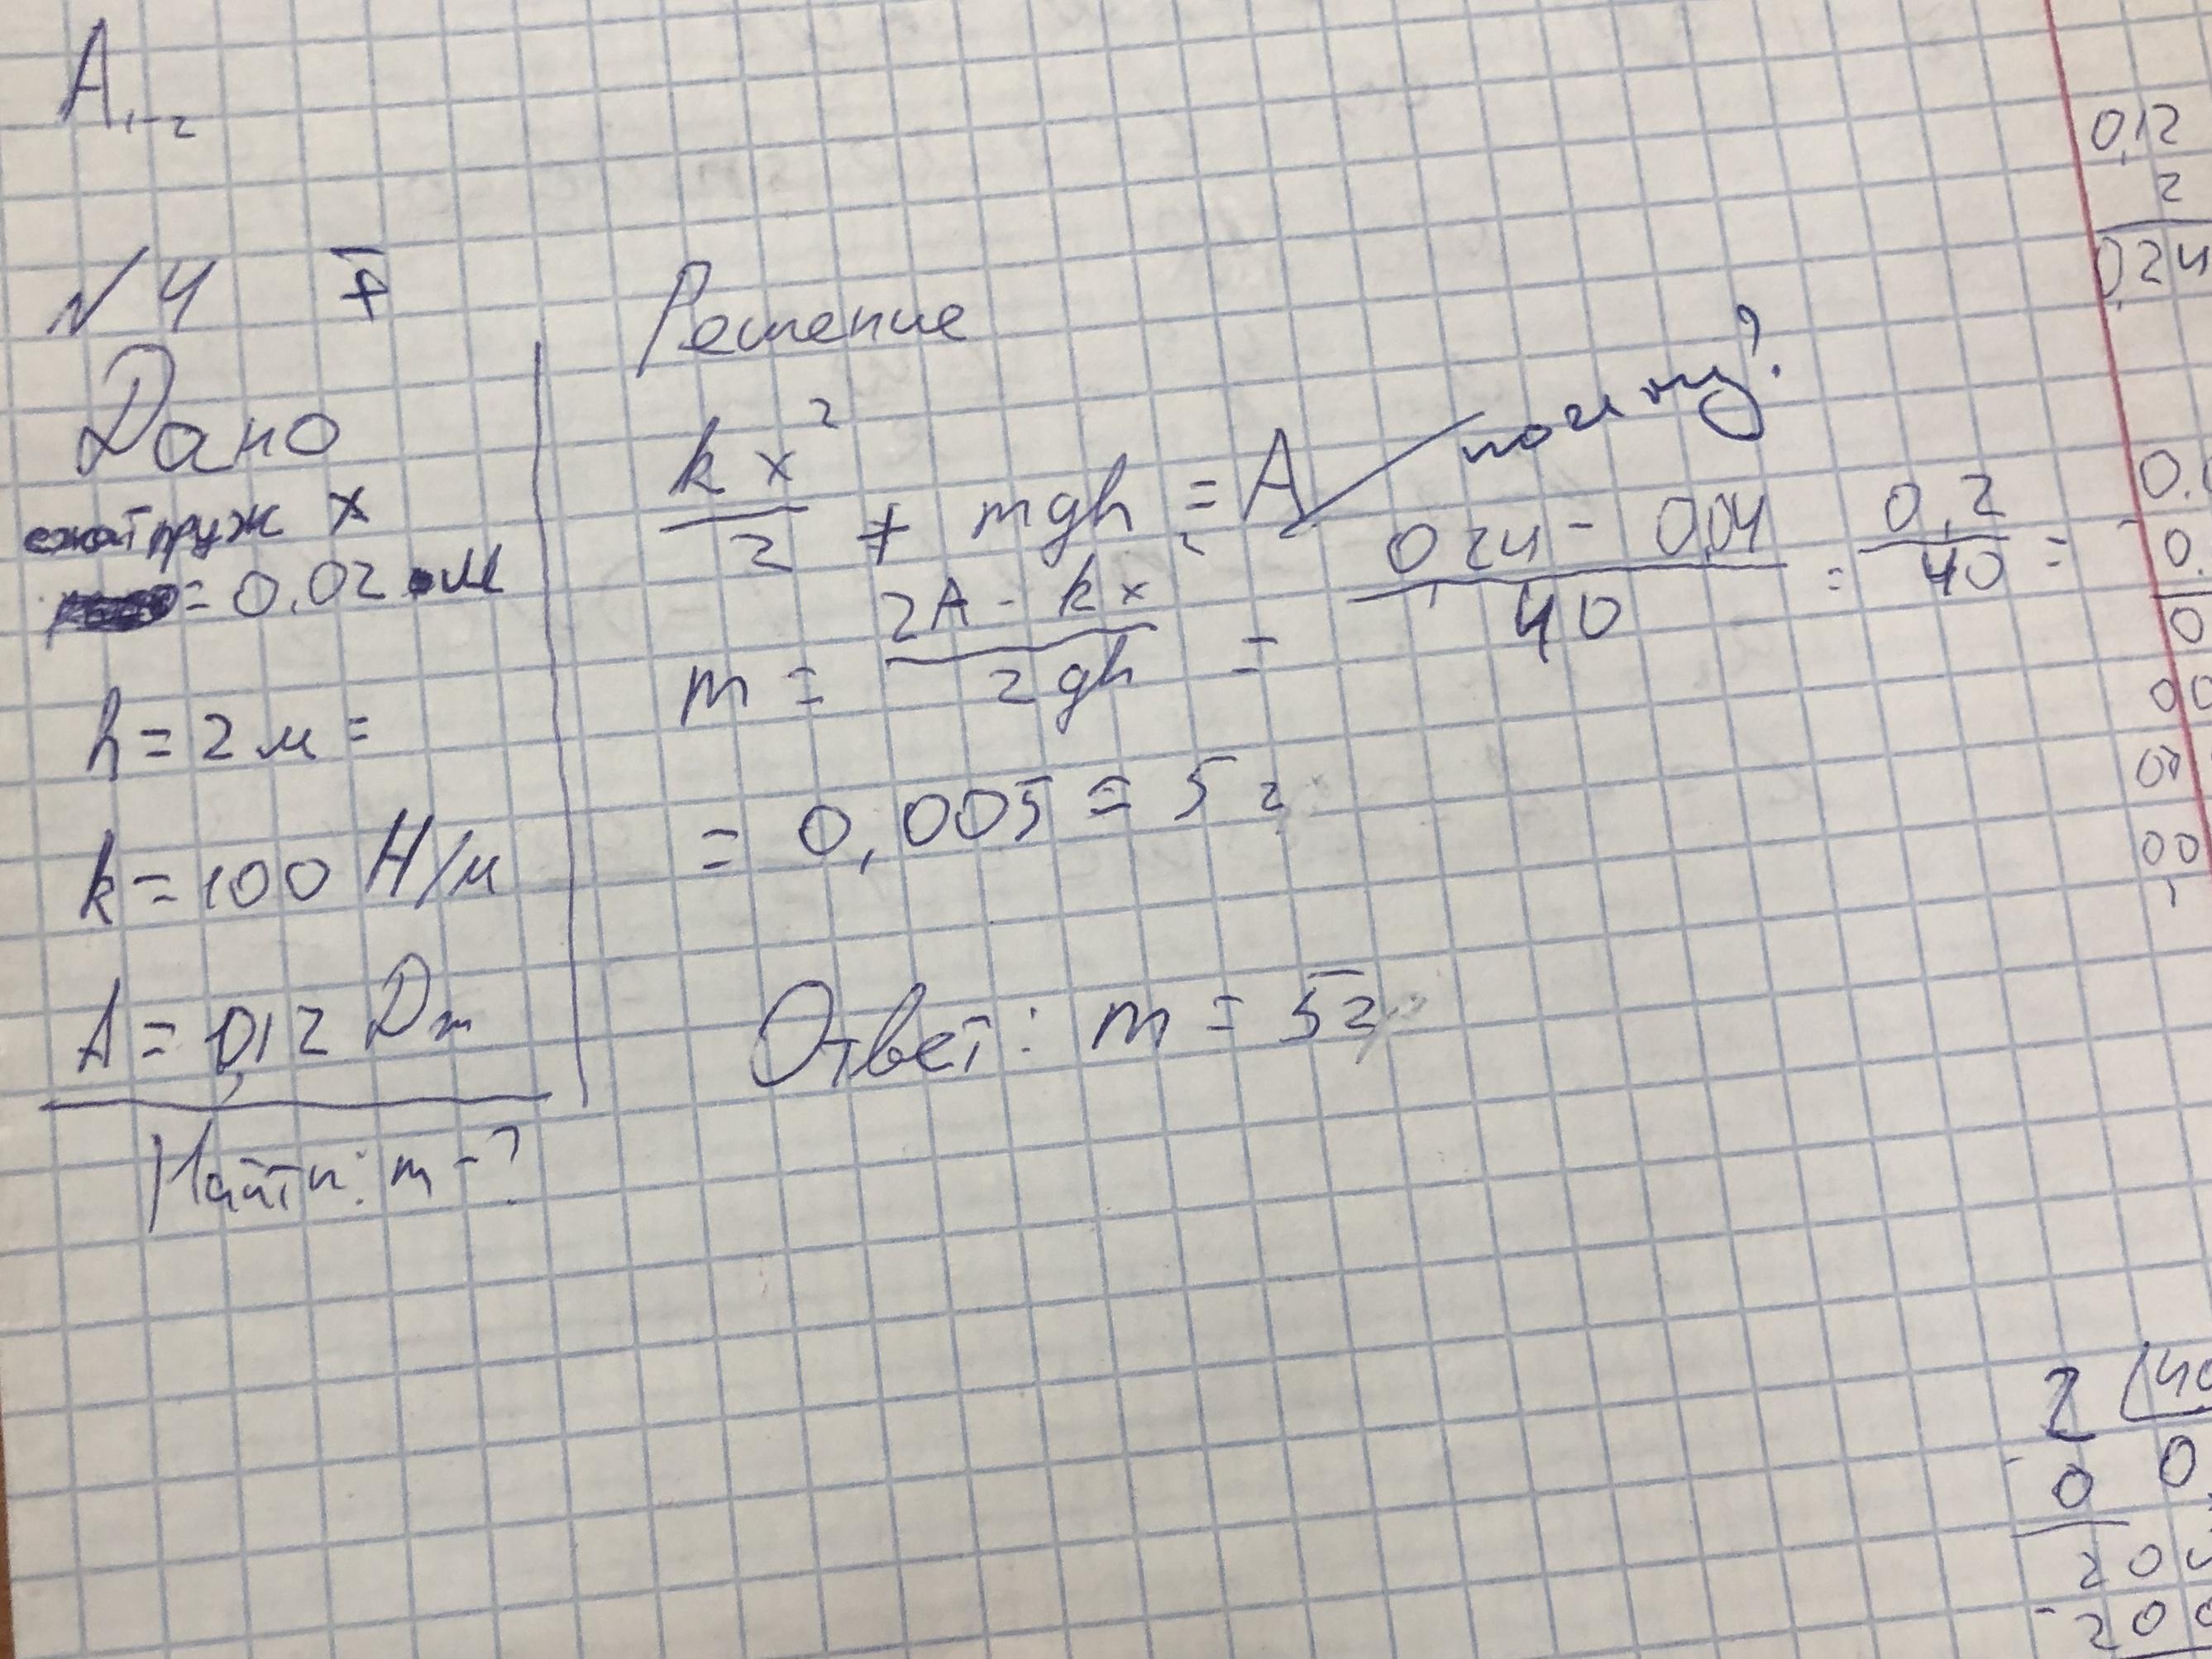 A₁₋₂
№ 4 ∓
Дано
сжат пруж x
= 0.02 м
h = 2 м =
k = 100 Н/м
A = 0,12 Дж
Найти: m - ?
Решение
kx²/2 + mgh = A почему?
m = (2A - kx)/(2gh) = (0,24 - 0,04)/40 = 0,2/40 =
= 0,005 = 5 г
Ответ: m = 5 г
0,12
2
0,24
0.
0.
0
00
00
00
2 40
0 0,
20
- 200